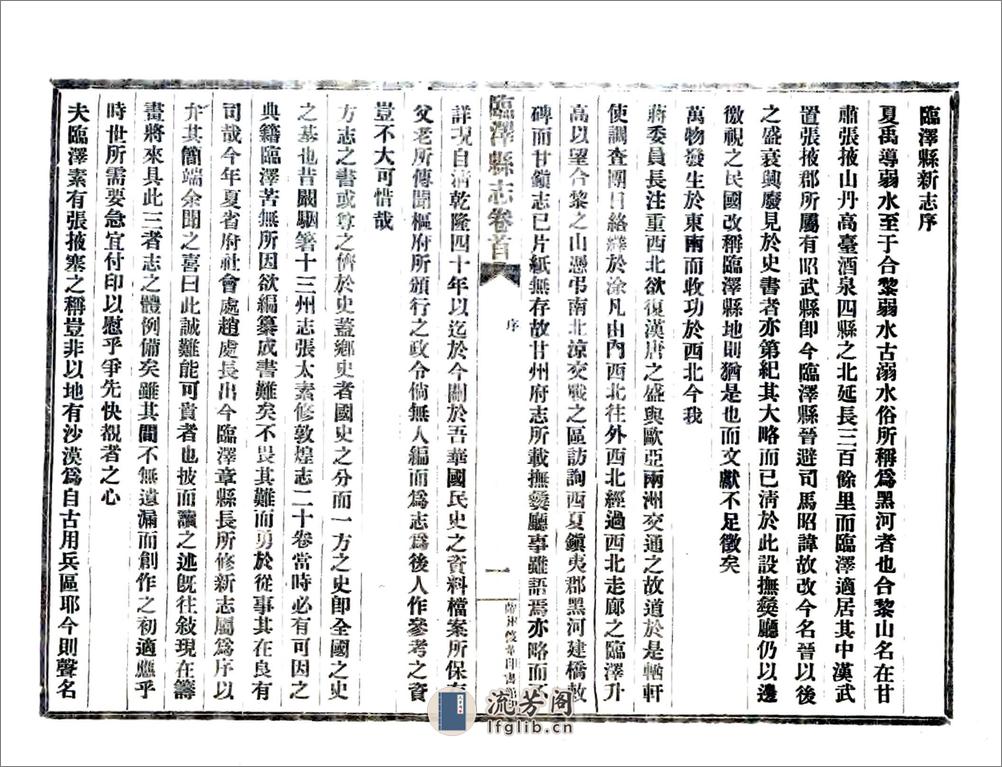 臨澤縣新志序
夏禹導弱水至于合黎弱水古溺水俗所稱爲黑河者也合黎山名在甘
肅張掖山丹高臺酒泉四縣之北延長三百餘里而臨澤適居其中漢武
置張掖郡所屬有昭武縣卽今臨澤縣晉避司馬昭諱故改今名晉以後
之盛衰興廢見於史書者亦第紀其大略而已淸於此設撫彝廳仍以邊
徼視之民國改稱臨澤縣地則猶是也而文獻不足徵矣
萬物發生於東南而收功於西北今我
蔣委員長注重西北欲復漢唐之盛與歐亞兩洲交通之故道於是輶軒
使調查團日絡繹於涂凡由內西北往外西北經過西北走廊之臨澤升
高以望合黎之山憑弔南北涼交戰之區訪詢西夏鎭夷郡黑河建橋敕
碑而甘鎭志已片紙無存故甘州府志所載撫彝廳事雖語焉亦略而
臨澤縣志卷首
序
一
詳况自淸乾隆四十年以迄於今關於吾華國民史之資料檔案所保
父老所傳聞樞府所頒行之政令倘無人編而爲志爲後人作參考之資
豈不大可惜哉
方志之書或尊之儕於史蓋鄉史者國史之分而一方之史卽全國之史
之基也昔闞駰箸十三州志張太素修敦煌志二十卷當時必有可因之
典籍臨澤苦無所因欲編纂成書難矣不畏其難而勇於從事其在良有
司哉今年夏省府社會處趙處長出今臨澤章縣長所修新志屬爲序以
弁其簡端余聞之喜曰此誠難能可貴者也披而讀之述旣往敍現在籌
畫將來具此三者志之體例備矣雖其間不無遺漏而創作之初適應乎
時世所需要急宜付印以慰乎爭先快覩者之心
夫臨澤素有張掖寨之稱豈非以地有沙漠爲自古用兵區耶今則聲名
流芳阁
lfglib.cn